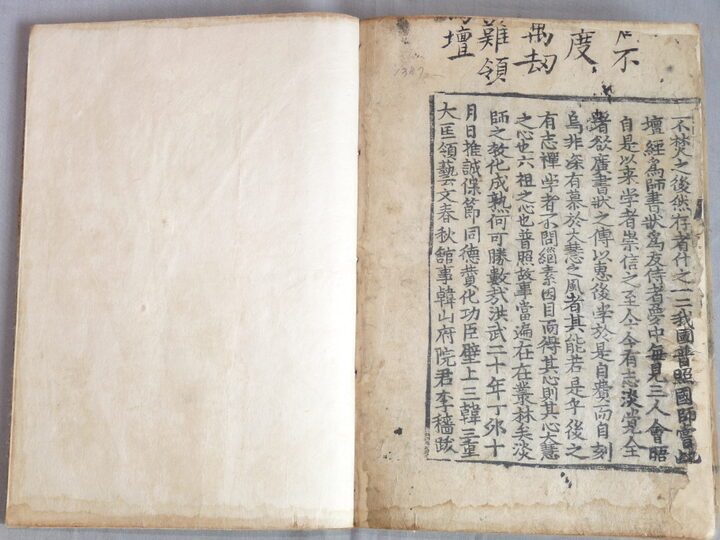 不
度
萬劫
難領
壇
1387
不焚之後然存者什之一二我國普照國師嘗以
壇經爲師書狀爲友侍者夢中每見三人會晤
自是以来学者崇信之至今今有志淡覺全
者欲廣書狀之傳以惠後学於是自費而自刻
焉非深有慕於大慧之風者其能若是乎後之
有志禪学者不問緇素因目而得其心則其心大慧
之心也六祖之心也普照故事當遍在在叢林矣淡
師之教化成熟何可勝數哉洪武二十年丁卯十
月日推誠保節同德賛化功臣壁上三韓三重
大匡領藝文春秋館事韓山府院君李穡跋